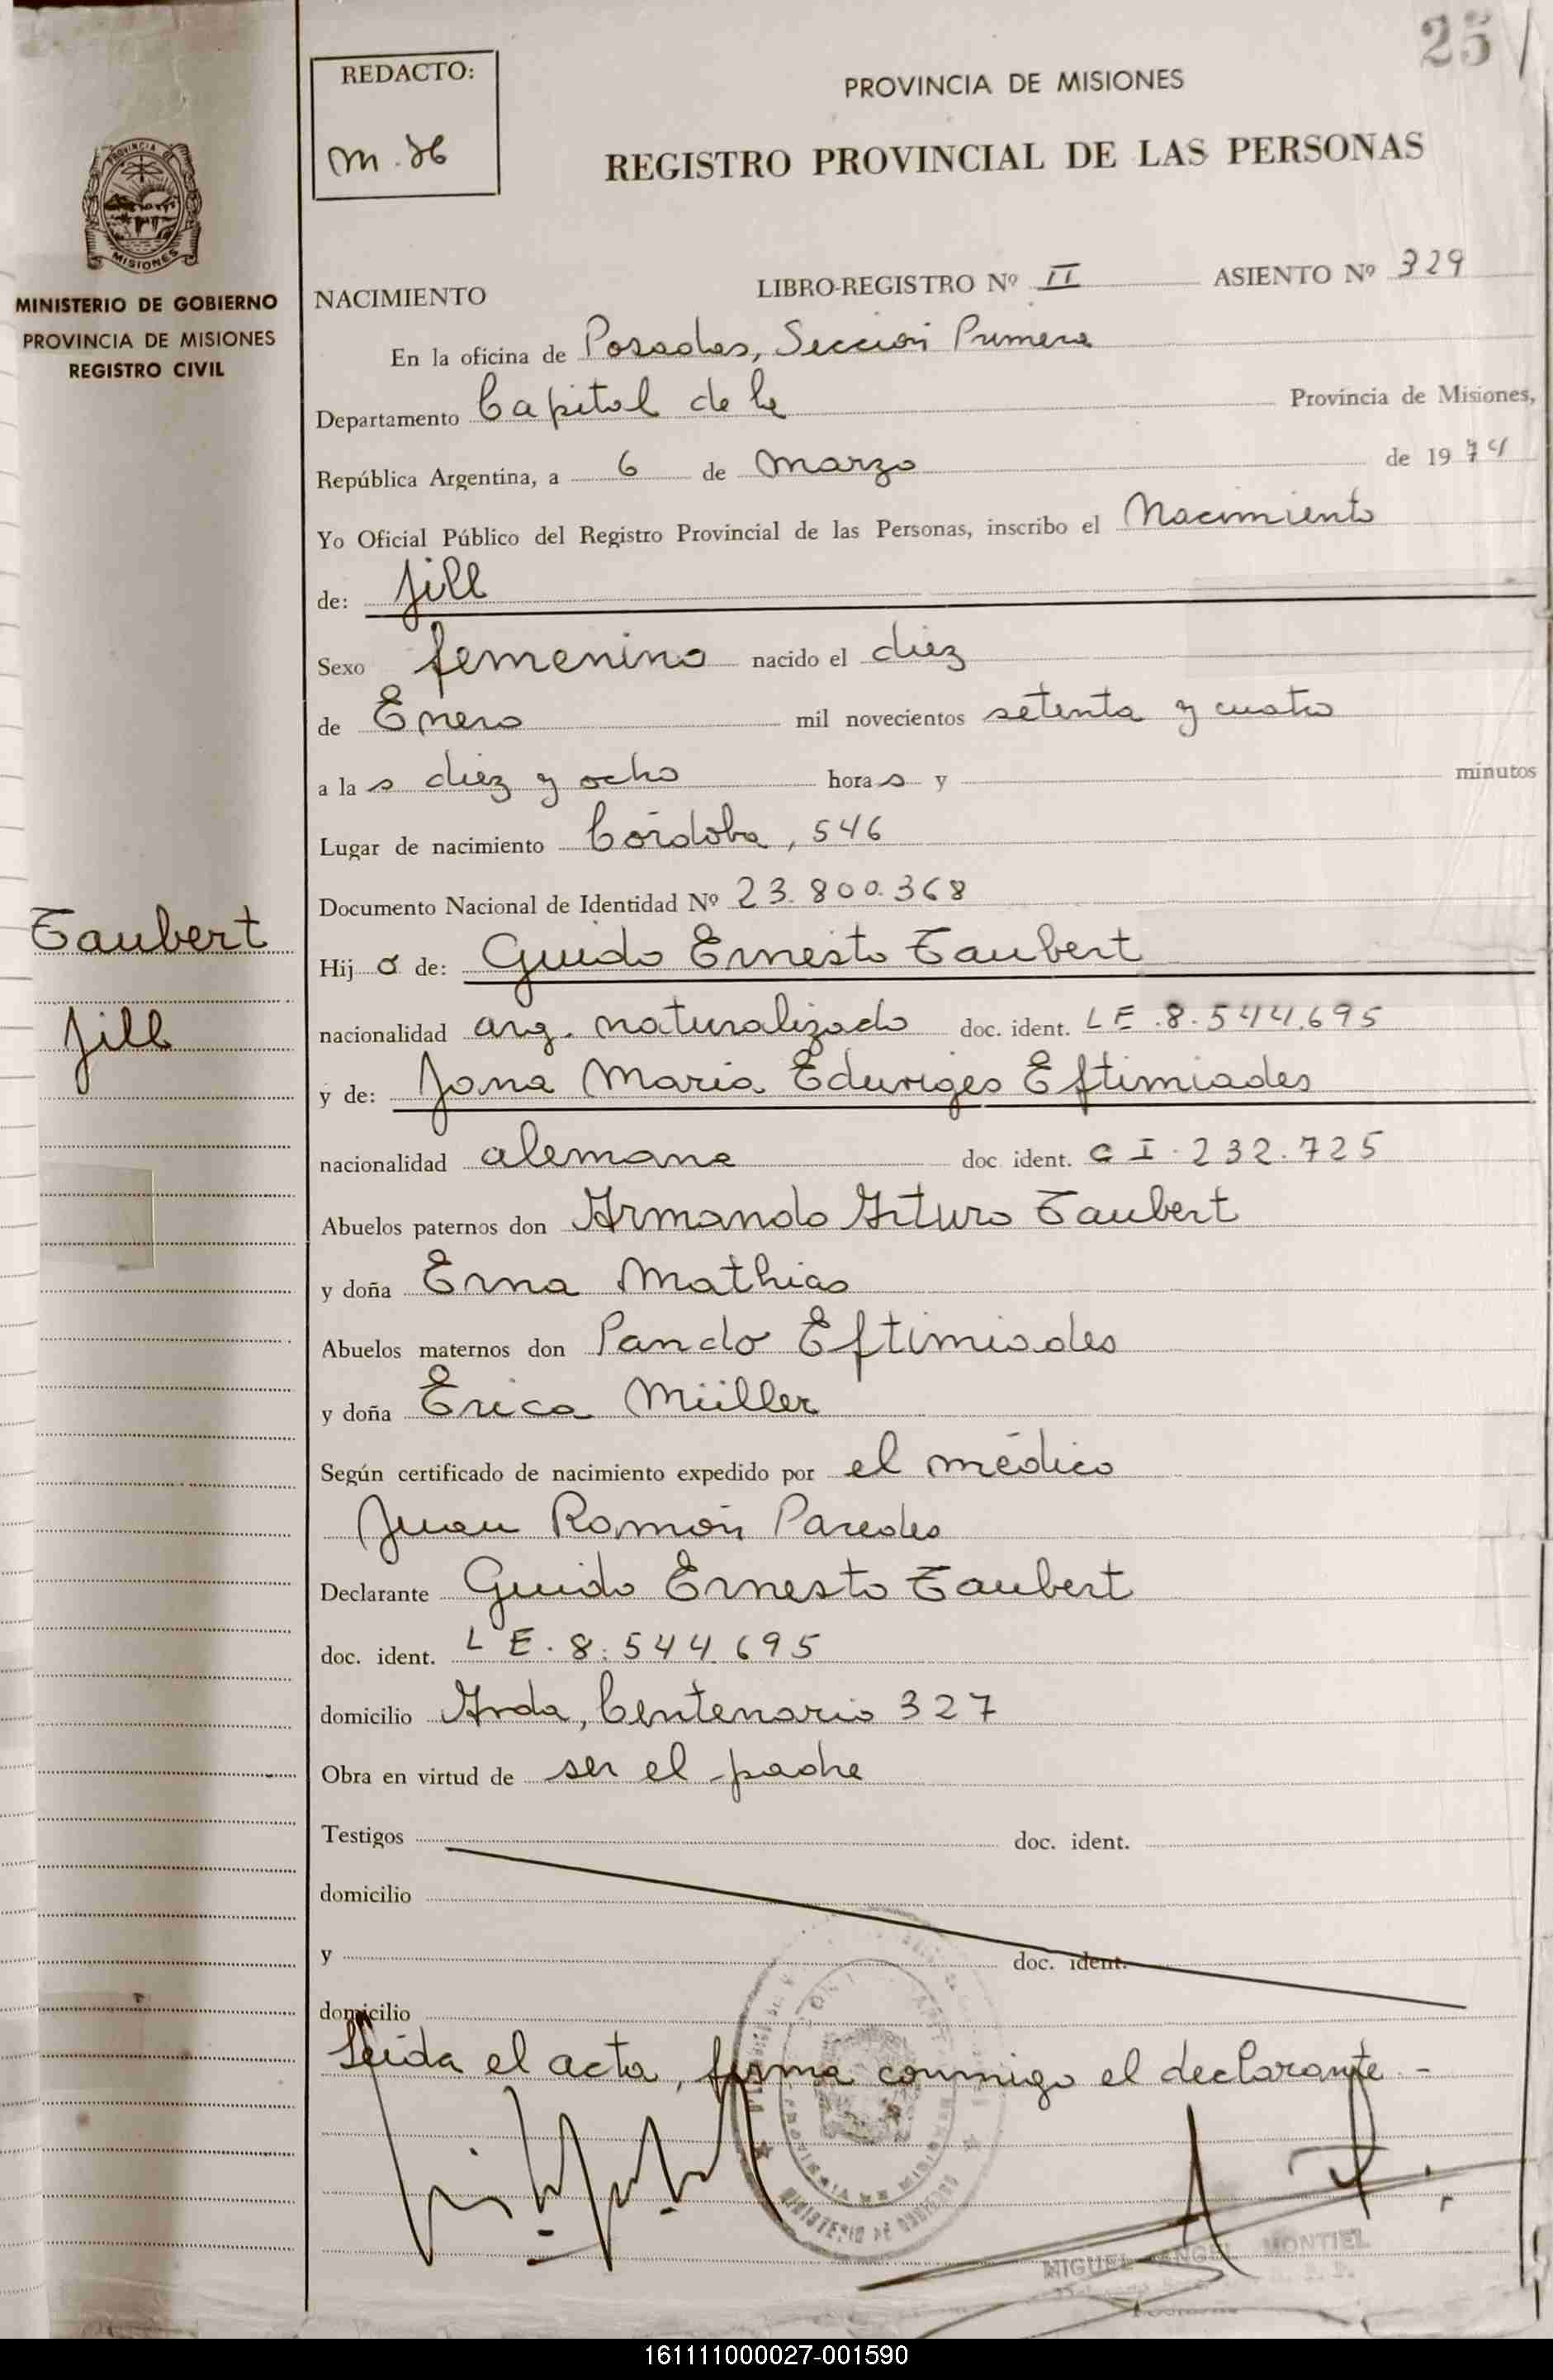 25
REDACTO:
PROVINCIA DE MISIONES
REGISTRO PROVINCIAL DE LAS PERSONAS
MISIONES
MINISTERIO DE GOBIERNO
PROVINCIA DE MISIONES
REGISTRO CIVIL
NACIMIENTO LIBRO-REGISTRO Nº II ASIENTO Nº 329
En la oficina de Posadas, Sección Primera
Departamento Capital de la Provincia de Misiones,
República Argentina, a 6 de Marzo de 1974
Yo Oficial Público del Registro Provincial de las Personas, inscribo el Nacimiento
de: Jill
Sexo femenino nacido el diez
de Enero mil novecientos setenta y cuatro
a la s diez y ocho hora s y minutos
Lugar de nacimiento Córdoba, 546
Documento Nacional de Identidad Nº 23.800.368
Taubert
Jill
Hij a de: Guido Ernesto Taubert
nacionalidad arg. naturalizado doc. ident. LE.8.544.695
y de: Jona Maria Eduviges Eftimiades
nacionalidad alemana doc. ident. C I. 232.725
Abuelos paternos don Armando Arturo Taubert
y doña Erna Mathias
Abuelos maternos don Pando Eftimiades
y doña Erica Müller
Según certificado de nacimiento expedido por el médico
Juan Ramón Paredes
Declarante Guido Ernesto Taubert
doc. ident. L E. 8.544.695
domicilio Avda, Centenario 327
Obra en virtud de ser el padre
Testigos doc. ident.
domicilio
y doc. ident.
domicilio
Leida el acta, firma conmigo el declarante.-
MIGUEL ANGEL MONTIEL
161111000027-001590